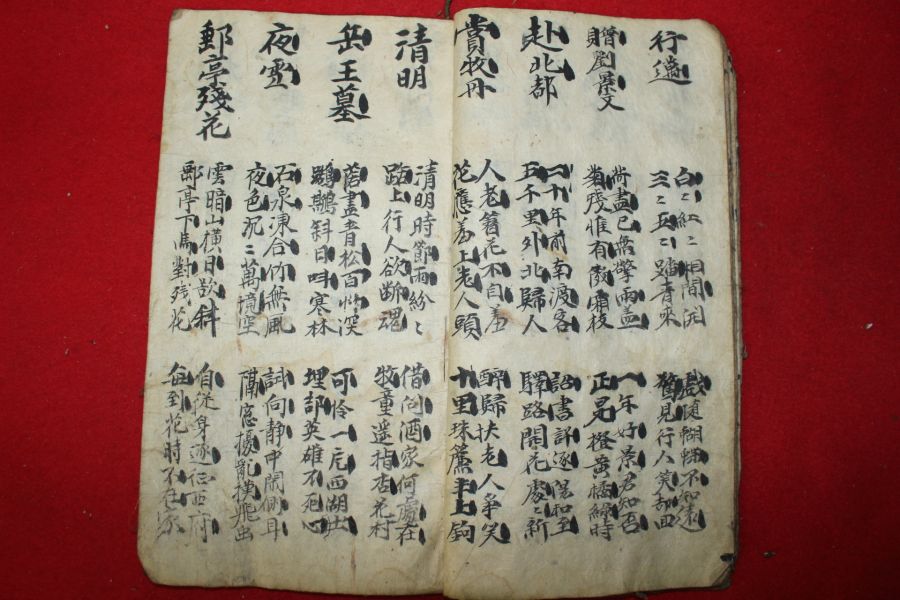 行
白〻紅〻相間開
三〻五〻踏青來
戲隨蝴蝶不知遠
驚見行人笑却回
贈劉景文
荷盡已無擎雨蓋
菊殘惟有傲霜枝
一年好景君知否
正是橙黃橘綠時
赴北都
二十年前南渡客
五千里外北歸人
詔書詳逐陽和至
驛路開花處〻新
賞牧丹
人老簪花不自羞
花應羞上老人頭
醉歸扶老人爭笑
十里珠簾半上鉤
清明
清明時節雨紛〻
路上行人欲斷魂
借問酒家何處在
牧童遙指杏花村
岳王墓
盡青松百深
鷓鴣斜日叫寒林
可怜一片西湖土
埋却英雄不死心
夜雪
石泉凍合竹無風
夜色沉〻萬境空
試向靜中閑側耳
隔窓擾亂撲飛虫
郵亭殘花
雲暗山橫日欲斜
郵亭下馬對殘花
自從身逐征西府
每到花時不在家